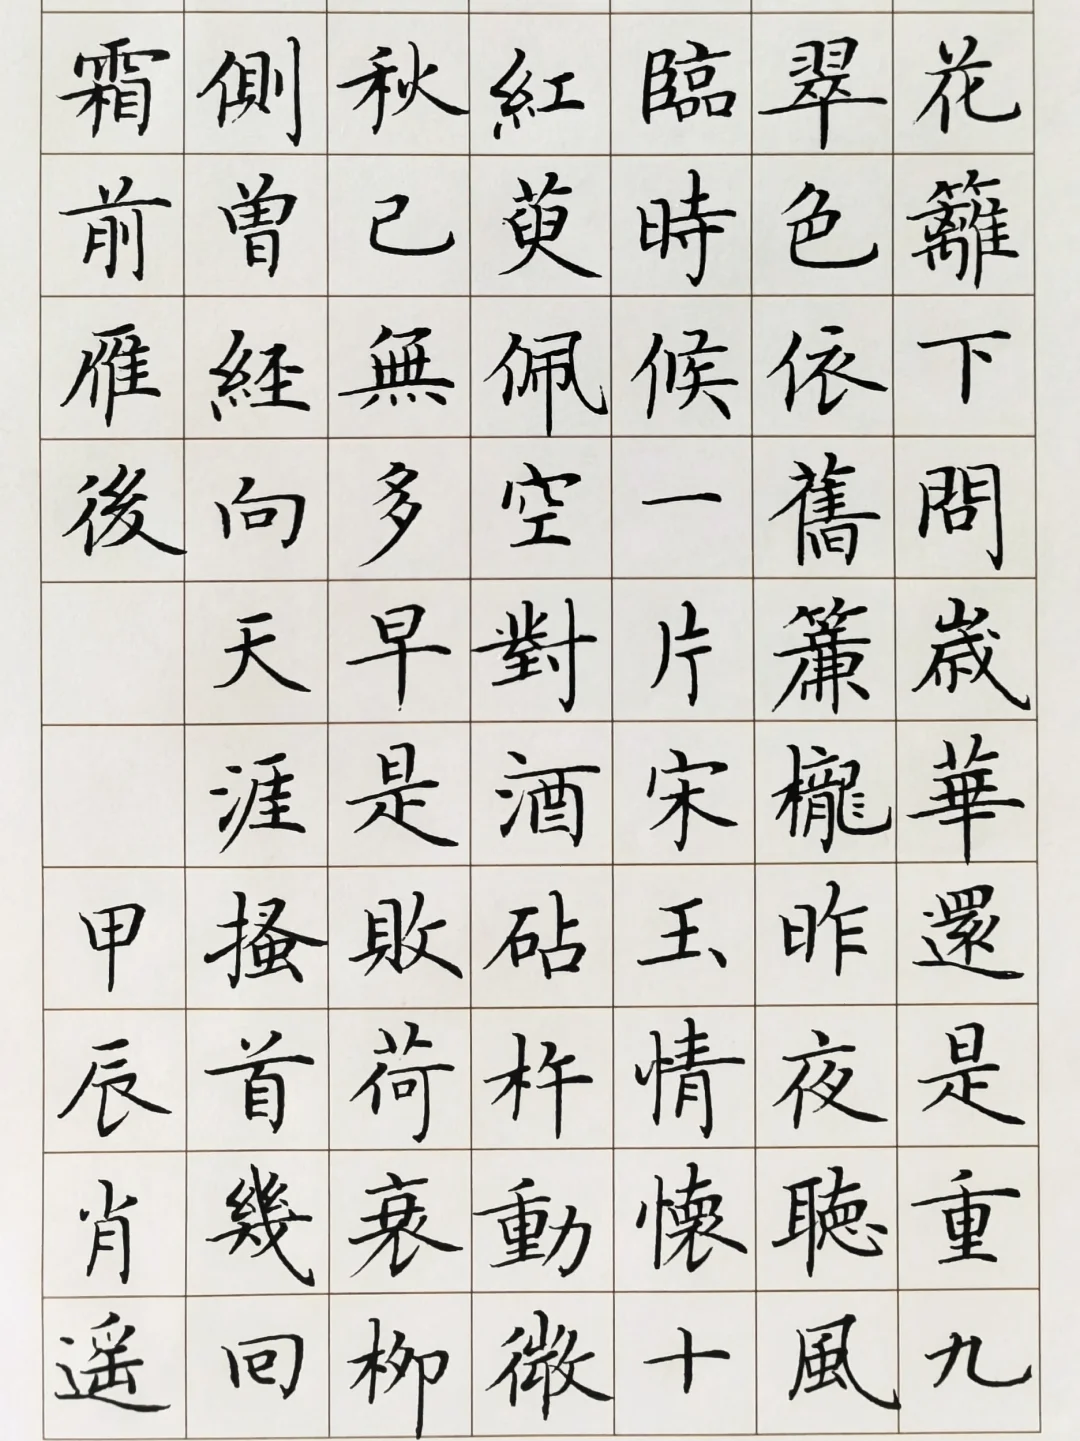 花籬下問歳華還是重九
翠色依舊簾櫳昨夜聽風
臨時候一片宋玉情懷十
紅萸佩空對酒砧杵動微
秋已無多早是敗荷衰柳
側曾經向天涯搔首幾回
霜前雁後甲辰肖遥